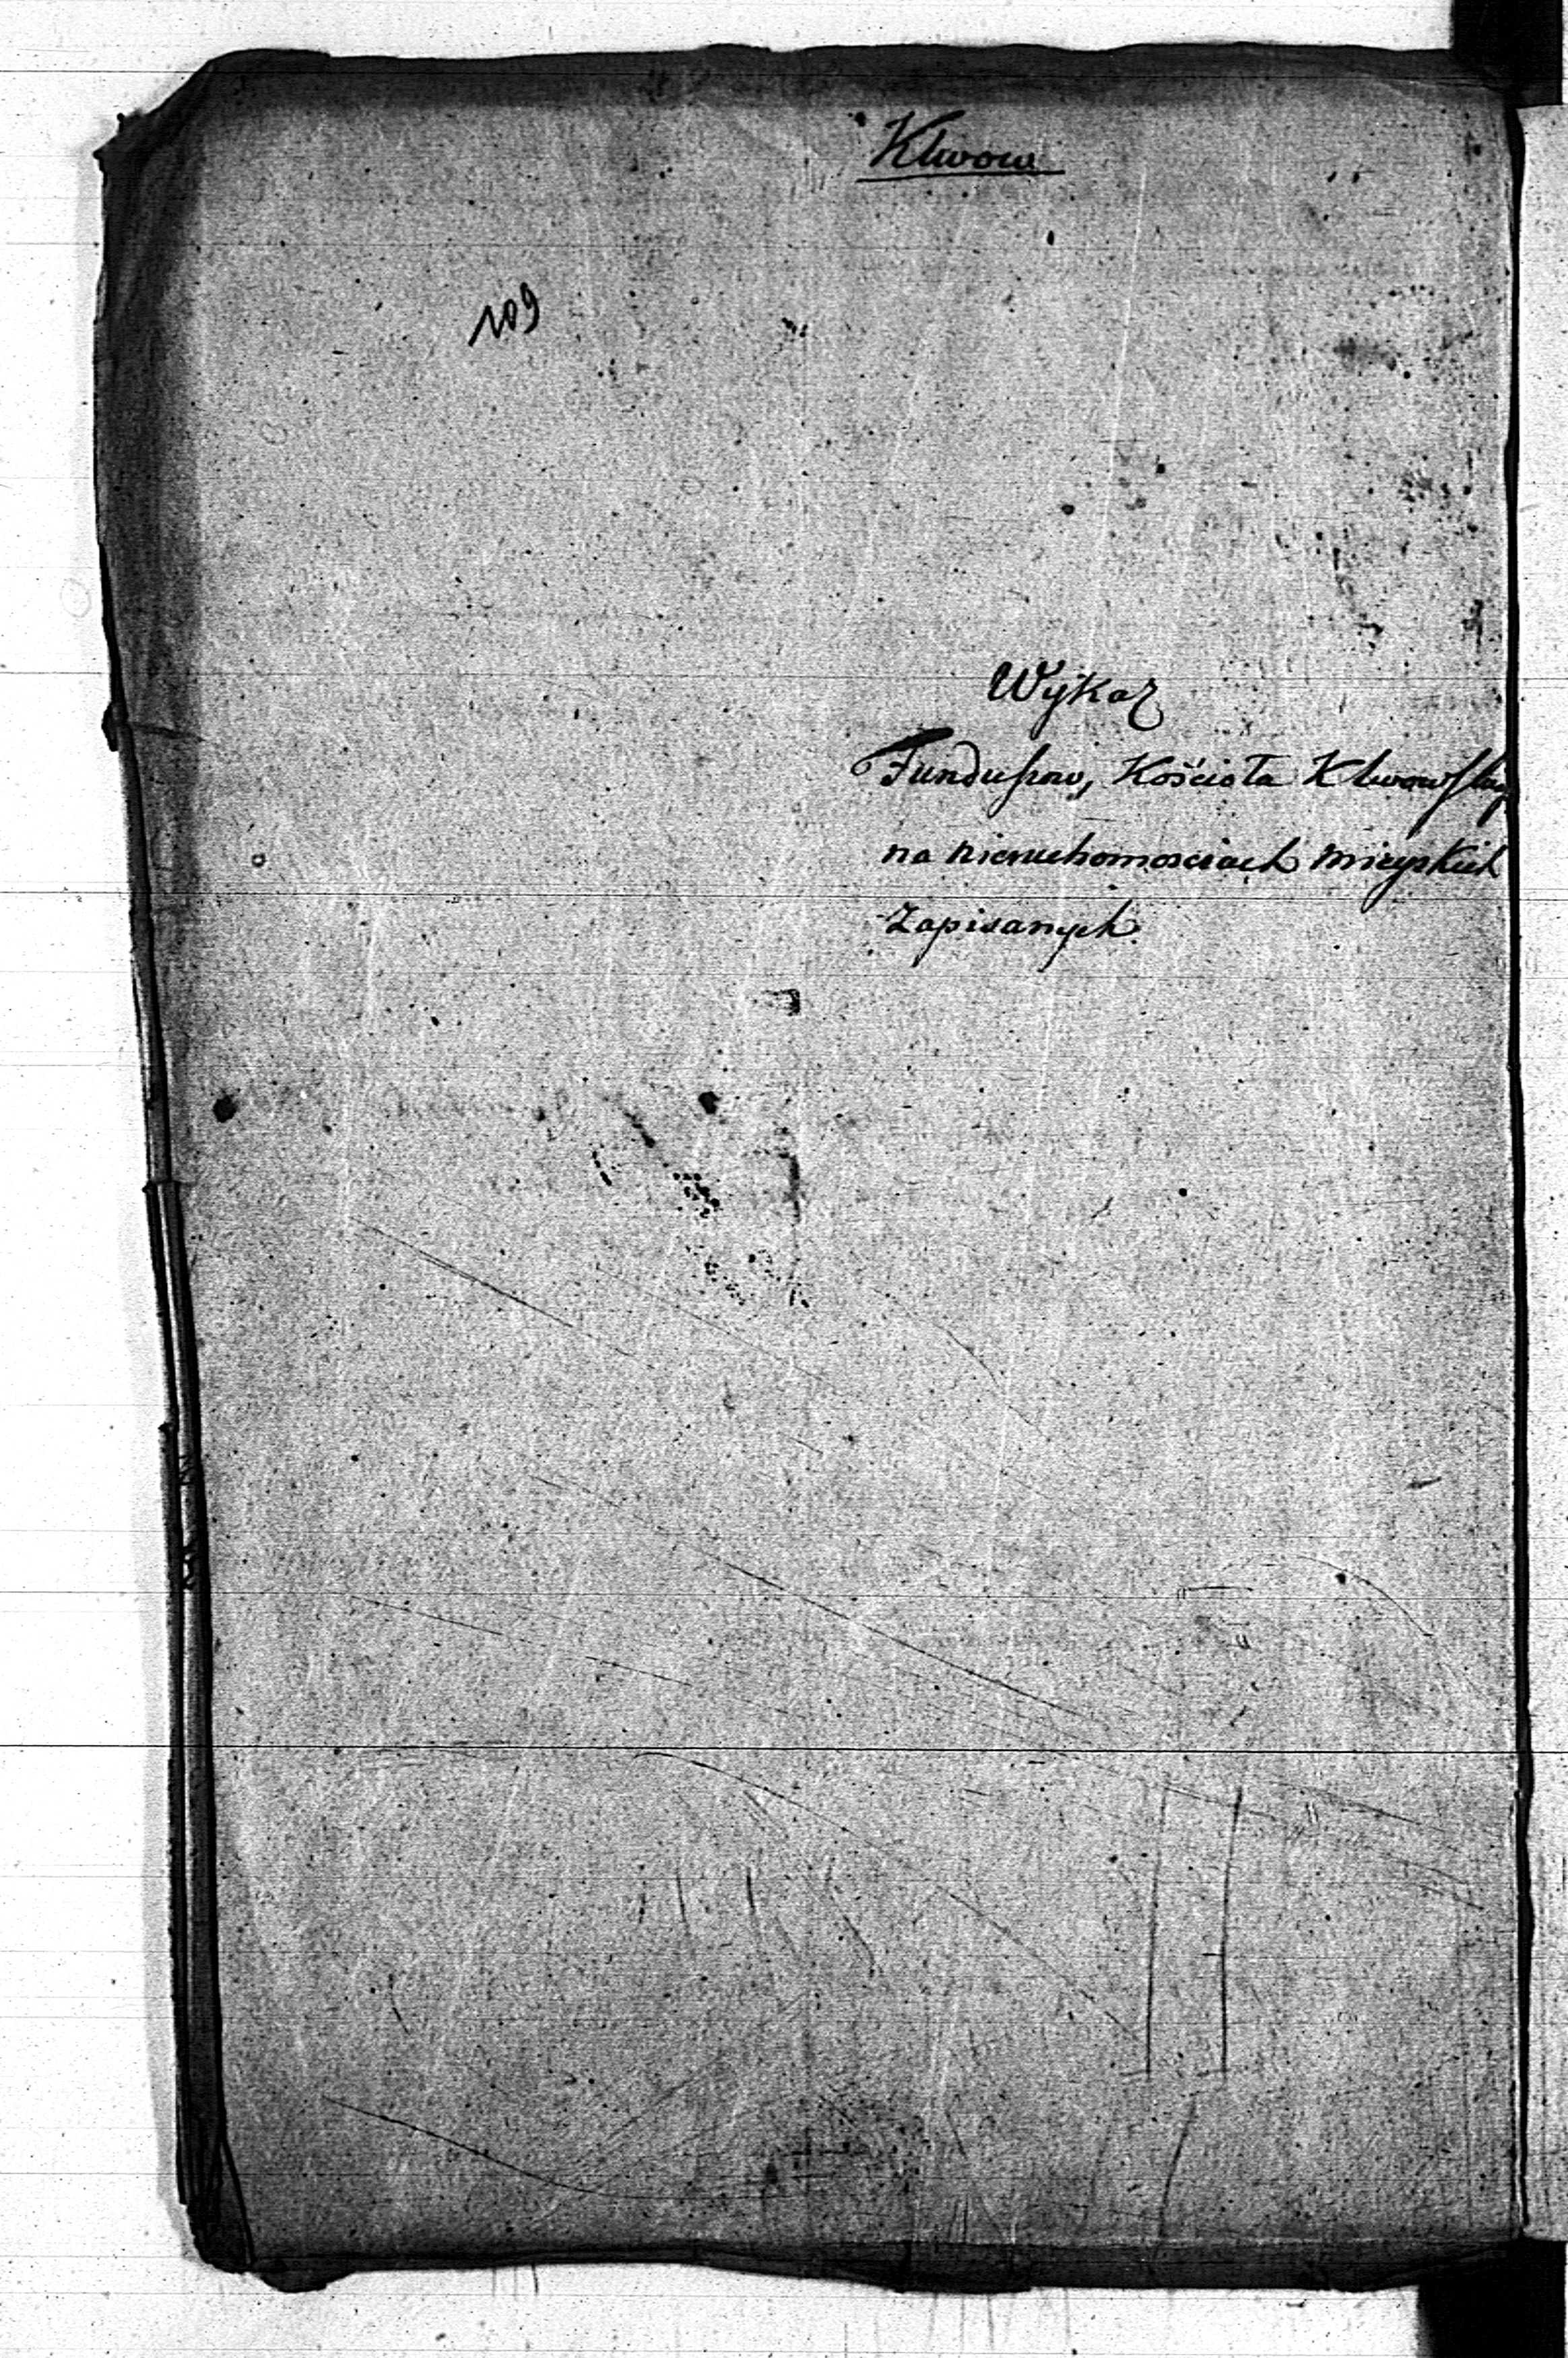 Klwow
109
Wykaz
Funduszow, Kościoła Klwowskieg
na nieruchomosciach mieyskich
zapisanych.